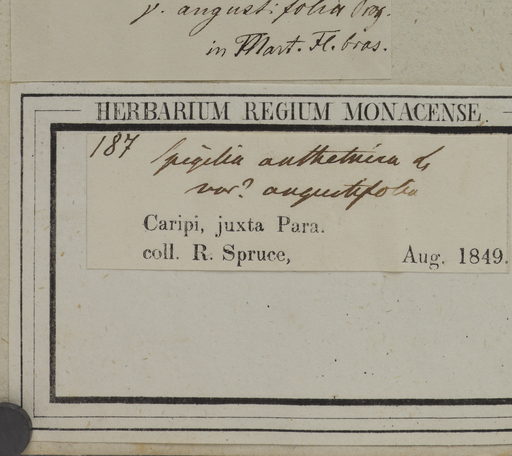 γ. angustifolia Prog.
in Mart. Fl. bras.
HERBARIUM REGIUM MONACENSE.
187 Spigelia anthelmia L.
var? angustifolia
Caripi, juxta Para.
coll. R. Spruce, Aug. 1849.